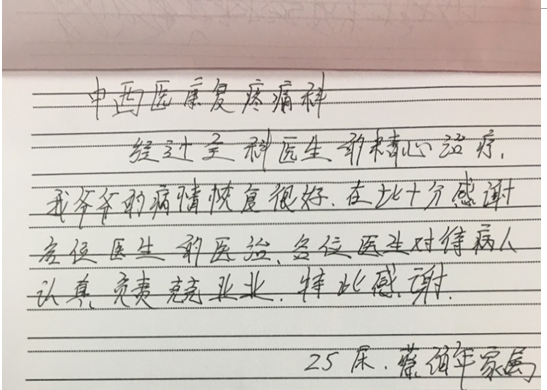 中西医康复疼痛科
经过全科医生的精心治疗,
我爷爷的病情恢复很好.在此十分感谢
各位医生的医治、各位医生对待病人
认真负责兢兢业业.特此感谢.
25床.蔡伯年家属